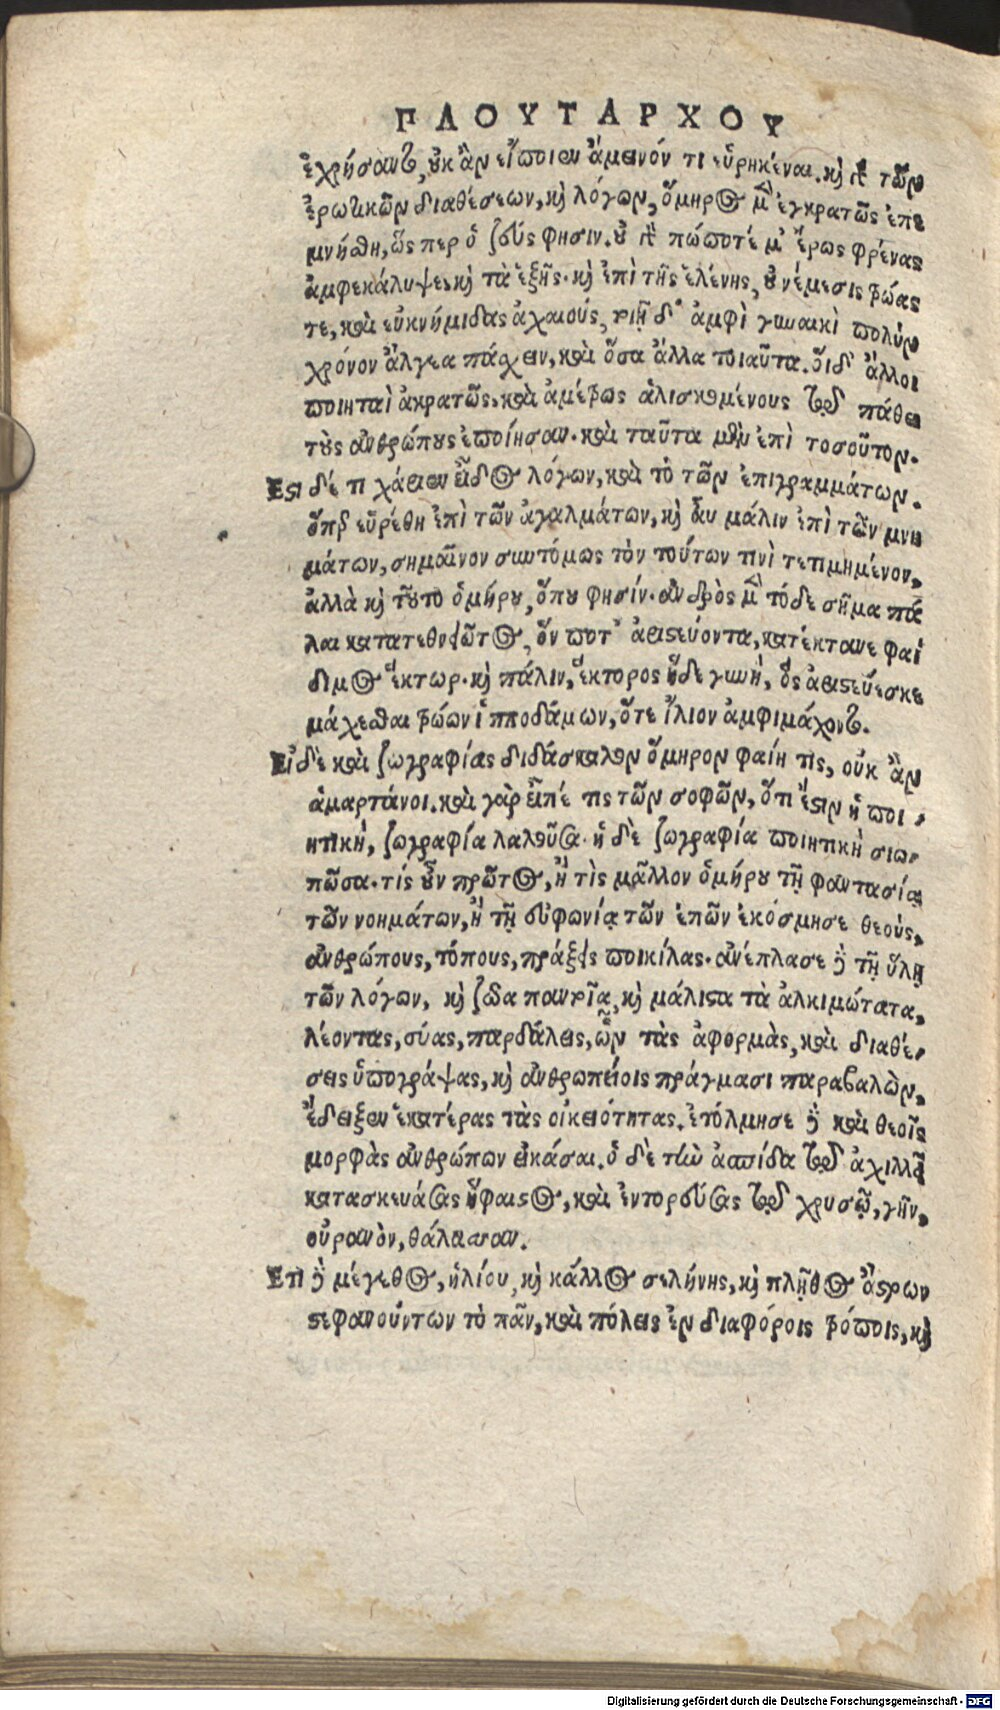 ΠΛΟΥΤΑΡΧΟΥ
ἐχρήσαντο, οὐκ ἂν εἴποιεν ἄμεινόν τι εὑρηκέναι. καὶ μὲν τῶν
ἐρωτικῶν διαθέσεων, καὶ λόγων, ὅμηρος μὲν ἐγκρατῶς ἐπε
μνήσθη, ὥς περ ὁ ζεύς φησιν. οὐ γὰρ πώποτέ μ' ἔρως φρένας
ἀμφεκάλυψε, καὶ τὰ ἑξῆς. καὶ ἐπὶ τῆς ἑλένης, οὐ νέμεσις τρῶας
τε, καὶ εὐκνήμιδας ἀχαιούς, τοιῇ δ' ἀμφὶ γυναικὶ πολὺν
χρόνον ἄλγεα πάσχειν, καὶ ὅσα ἄλλα τοιαῦτα. οἵδ' ἄλλοι
ποιηταὶ ἀκρατῶς, καὶ ἀμέτρως ἁλισκομένους τοῦ πάθει
τοὺς ἀνθρώπους ἐποίησαν. καὶ ταῦτα μὲν ἐπὶ τοσοῦτον.
Ἔστι δέ τι χάριεν εἶδος λόγων, καὶ τὸ τῶν ἐπιγραμμάτων.
ὅπερ εὑρέθη ἐπὶ τῶν ἀγαλμάτων, καὶ ἂυ μάλιν ἐπὶ τῶν μνη
μάτων, σημαῖνον συντόμως τὸν τούτων τινὶ τετιμημένον,
ἀλλὰ καὶ τοῦτο ὁμήρου, ὅπου φησίν. ἀνδρὸς μὲν τόδε σῆμα πά
λαι κατατεθνειῶτος, ὅν ποτ' ἀριστεύοντα, κατέκτανε φαί
διμος ἕκτωρ. καὶ πάλιν, ἕκτορος ἥδε γυνὴ, ὃς ἀριστεύεσκε
μάχεσθαι τρώων ἱπποδάμων, ὅτε ἴλιον ἀμφιμάχοντο.
Εἰ δὲ καὶ ζωγραφίας διδάσκαλον ὅμηρον φαίη τις, οὐκ ἂν
ἁμαρτάνοι. καὶ γὰρ εἶπέ τις τῶν σοφῶν, ὅτι ἔστιν ἡ ποι-
ητικὴ, ζωγραφία λαλοῦσα. ἡ δὲ ζωγραφία ποιητικὴ σιω-
πῶσα. τίς οὖν πρῶτος, ἢ τίς μᾶλλον ὁμήρου τῇ φαντασίᾳ
τῶν νοημάτων, ἢ τῇ συφωνίᾳ τῶν ἐπῶν ἐκόσμησε θεούς,
ἀνθρώπους, τόπους, πράξεις ποικίλας. ἀνέπλασε δὲ τῇ ὕλῃ
τῶν λόγων, καὶ ζῶα παντοῖα, καὶ μάλιστα τὰ ἀλκιμώτατα,
λέοντας, σύας, παρδάλεις, ὧν τὰς ἀφορμὰς, καὶ διαθέ-
σεις ὑπογράψας, καὶ ἀνθρωπείοις πράγμασι παραβαλὼν,
ἔδειξεν ἑκατέρας τὰς οἰκειότητας. ἐτόλμησε δὲ καὶ θεοῖς
μορφὰς ἀνθρώπων εἰκάσαι. ὁ δὲ τὴν ἀσπίδα τοῦ ἀχιλλεῖ
κατασκευάσας ἥφαιστος, καὶ ἐντορεύσας τῷ χρυσῷ, γῆν,
οὐρανὸν, θάλασσαν.
Ἔτι δὲ μέγεθος, ἡλίου, καὶ κάλλος σελήνης, καὶ πλῆθος ἄστρων
στεφανούντων τὸ πᾶν, καὶ πόλεις ἐν διαφόροις τρόποις, καὶ
Digitalisierung gefördert durch die Deutsche Forschungsgemeinschaft - DFG